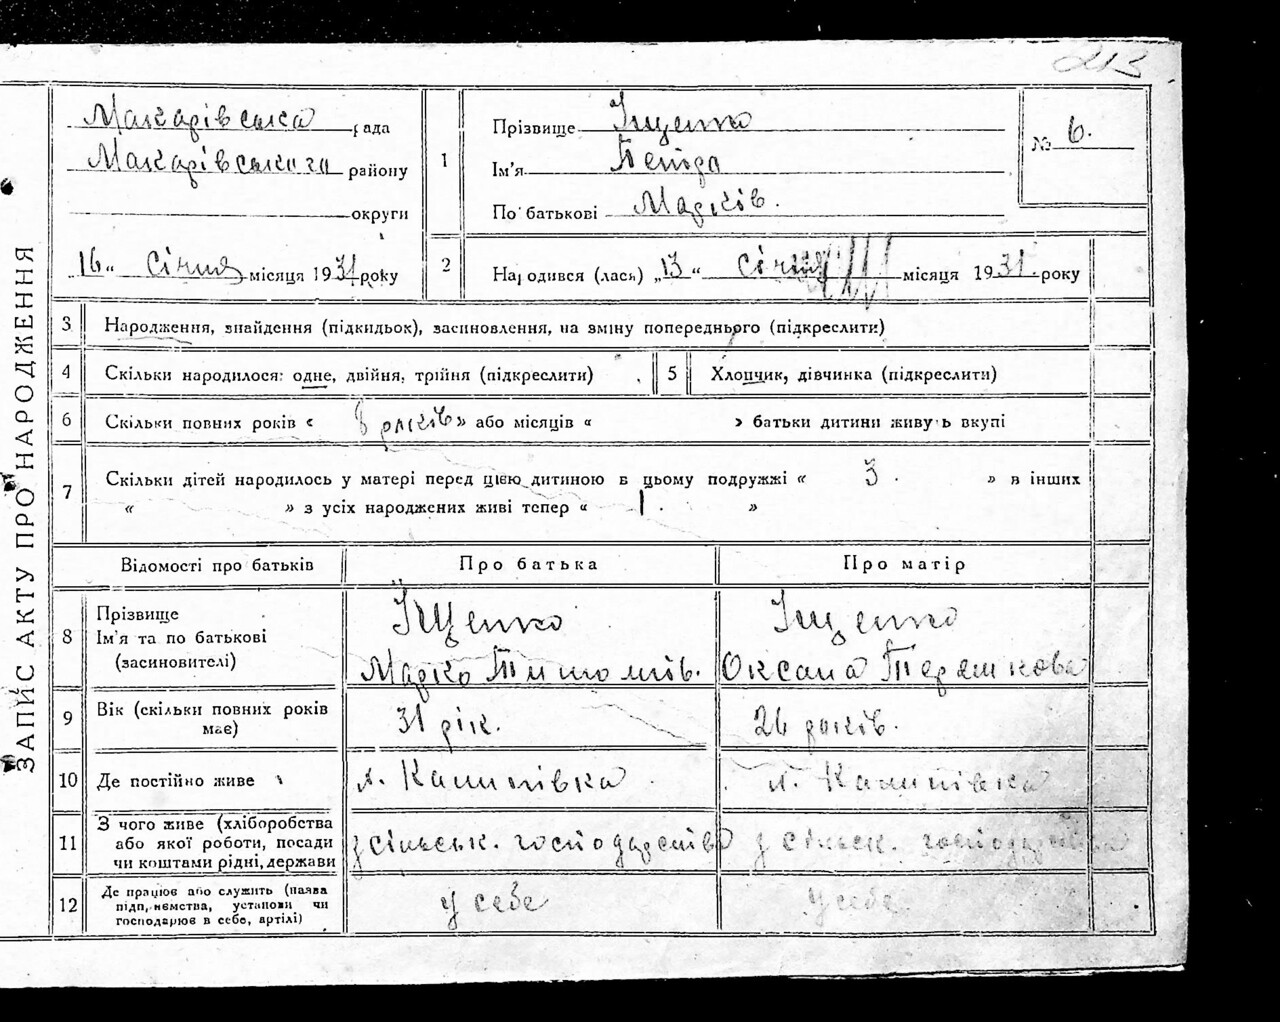 213
ЗАПИС АКТУ ПРО НАРОДЖЕННЯ
Макарівська рада
Макарівського району
округи
16 „ Січня місяця 1931 року
1
Прізвище Іщенко
Ім'я
По батькові Марків.
№ 6.
2
Народився (лась) „13 “ січня місяця 1931 року
3 Народження, знайдення (підкидьок), засиновлення, на зміну попереднього (підкреслити)
4 Скільки народилося: одне, двійня, трійня (підкреслити)
5 Хлопчик, дівчинка (підкреслити)
6 Скільки повних років « 8 років » або місяців « » батьки дитини живуть вкупі
7 Скільки дітей народилось у матері перед цією дитиною в цьому подружжі « 3 . » в інших
« » з усіх народжених живі тепер « 1 . »
Відомості про батьків Про батька Про матір
8 Прізвище
Ім'я та по батькові
(засиновителі)
Іщенко
Марко
Іщенко
Оксана Терешкова
9 Вік (скільки повних років
має)
31 рік.
26 років.
10 Де постійно живе
х. Калинівка
х. Калинівка
11 З чого живе (хліборобства
або якої роботи, посади
чи коштами рідні, держави
з сільськ. господарства
з сільск. господарства
12 Де працює або служить (назва
підприємства, установи чи
господарює в себе, артілі)
у себе
у себе